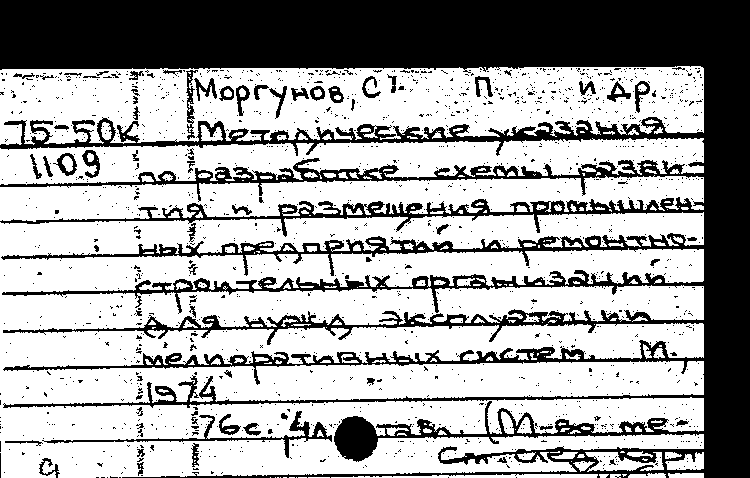 Моргунов, С. П. и др.
75-50к Методические указания
1109 по разработке схемы разви-
тия и размещения промышлен-
ных предприятий и ремонтно-
строительных организаций
для нужд эксплуатации
мелиоративных систем. М.,
1974.
76с. 4л табл. (М-во ме-
См. след. карт